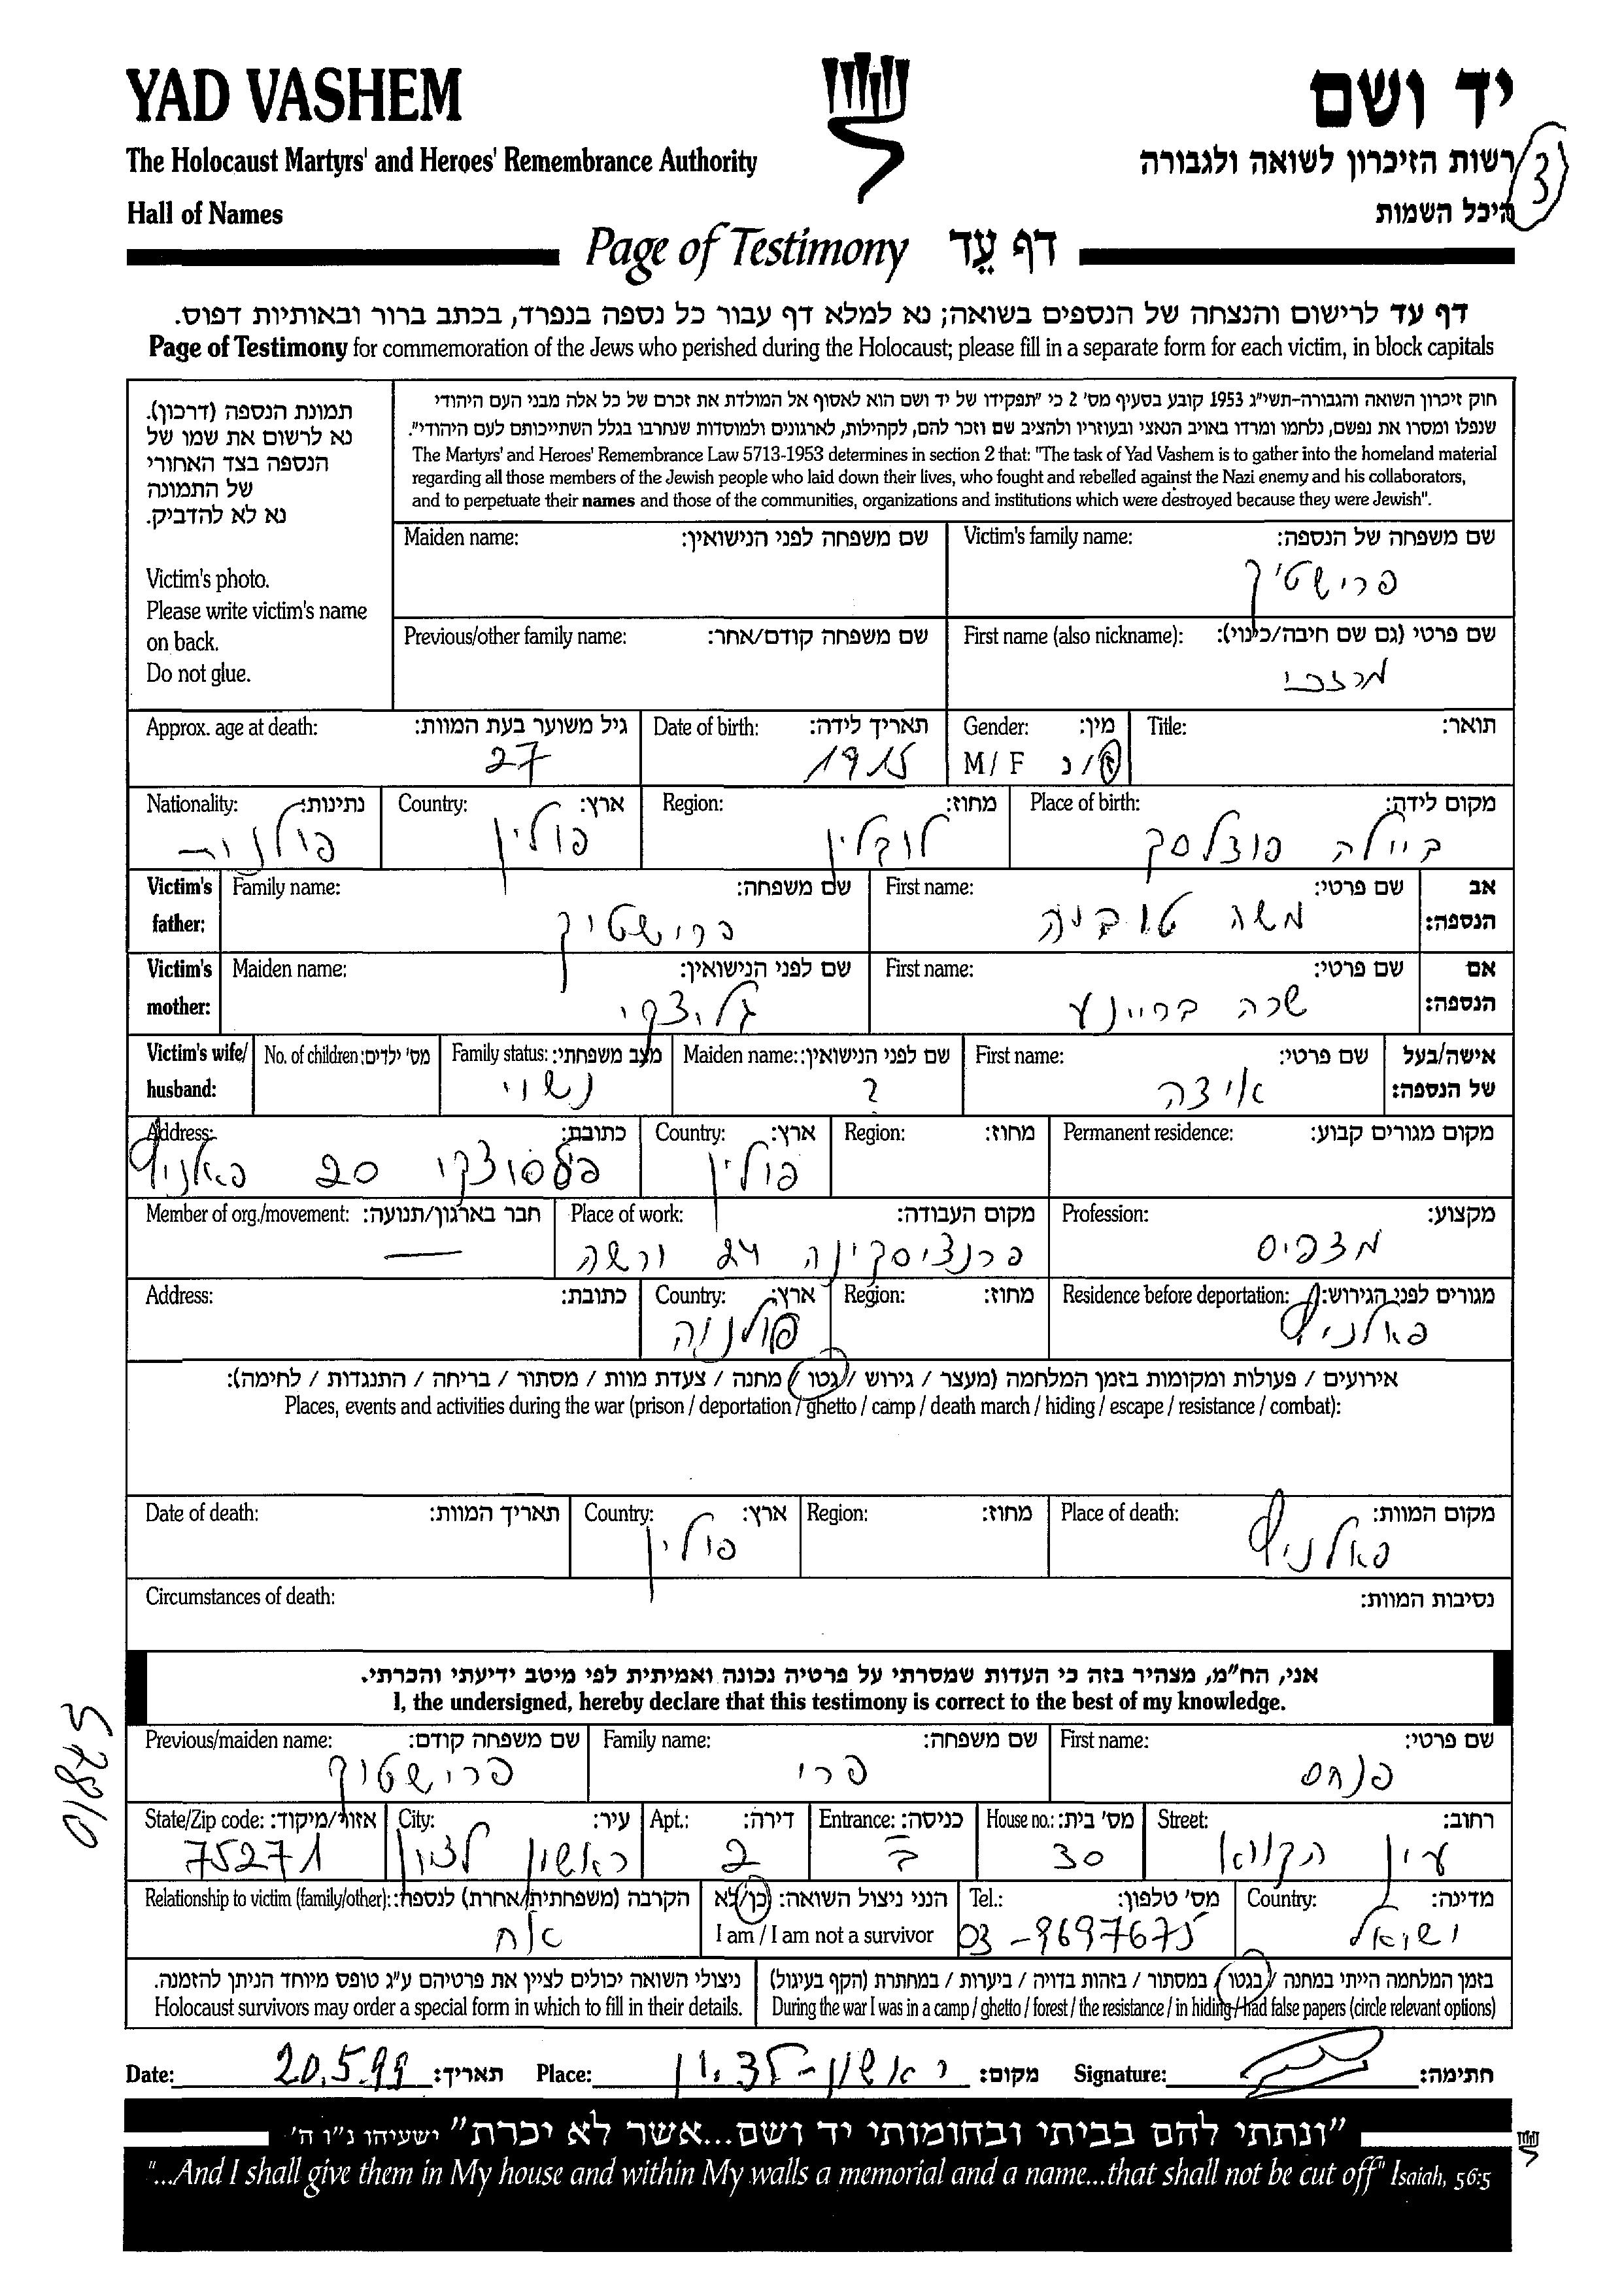 YAD VASHEM
יד ושם
The Holocaust Martyrs' and Heroes' Remembrance Authority
רשות הזיכרון לשואה ולגבורה
3
Hall of Names
היכל השמות
Page of Testimony דף עֵד
דף עד לרישום והנצחה של הנספים בשואה; נא למלא דף עבור כל נספה בנפרד, בכתב ברור ובאותיות דפוס.
Page of Testimony for commemoration of the Jews who perished during the Holocaust; please fill in a separate form for each victim, in block capitals
תמונת הנספה (דרכון).
נא לרשום את שמו של
הנספה בצד האחורי
של התמונה
נא לא להדביק.
Victim's photo.
Please write victim's name
on back.
Do not glue.
חוק זיכרון השואה והגבורה-תשי"ג 1953 קובע בסעיף מס' 2 כי "תפקידו של יד ושם הוא לאסוף אל המולדת את זכרם של כל אלה מבני העם היהודי
שנפלו ומסרו את נפשם, נלחמו ומרדו באויב הנאצי ובעוזריו ולהציב שם וזכר להם, לקהילות, לארגונים ולמוסדות שנחרבו בגלל השתייכותם לעם היהודי".
The Martyrs' and Heroes' Remembrance Law 5713-1953 determines in section 2 that: "The task of Yad Vashem is to gather into the homeland material
regarding all those members of the Jewish people who laid down their lives, who fought and rebelled against the Nazi enemy and his collaborators,
and to perpetuate their names and those of the communities, organizations and institutions which were destroyed because they were Jewish".
Victim's family name: שם משפחה של הנספה:
פרישטיק
Maiden name: שם משפחה לפני הנישואין:
First name (also nickname): שם פרטי (גם שם חיבה/כינוי):
מרדכי
Previous/other family name: שם משפחה קודם/אחר:
Title: תואר:
Gender: מין:
M / F ז/נ
Date of birth: תאריך לידה:
1915
Approx. age at death: גיל משוער בעת המוות:
27
Place of birth: מקום לידה:
ביילה פודלסק
Region: מחוז:
לובלין
Country: ארץ:
פולין
Nationality: נתינות:
פולנית
Victim's father: אב הנספה:
First name: שם פרטי:
משה טוביה
Family name: שם משפחה:
פרישטיק
Victim's mother: אם הנספה:
First name: שם פרטי:
שרה בריינע
Maiden name: שם לפני הנישואין:
Victim's wife/husband: אישה/בעל של הנספה:
First name: שם פרטי:
Maiden name: שם לפני הנישואין:
?
Family status: מצב משפחתי:
נשוי
No. of children: מס' ילדים:
Permanent residence: מקום מגורים קבוע:
Region: מחוז:
Country: ארץ:
פולין
Address: כתובת:
20
Profession: מקצוע:
מדפיס
Place of work: מקום העבודה:
פרנציסקינה 24 ורשה
Member of org./movement: חבר בארגון/תנועה:
—
Residence before deportation: מגורים לפני הגירוש:
Region: מחוז:
Country: ארץ:
Address: כתובת:
אירועים / פעולות ומקומות בזמן המלחמה (מעצר / גירוש / גטו / מחנה / צעדת מוות / מסתור / בריחה / התנגדות / לחימה):
Places, events and activities during the war (prison / deportation / ghetto / camp / death march / hiding / escape / resistance / combat):
Place of death: מקום המוות:
Region: מחוז:
Country: ארץ:
פולין
Date of death: תאריך המוות:
Circumstances of death: נסיבות המוות:
אני, הח"מ, מצהיר בזה כי העדות שמסרתי על פרטיה נכונה ואמיתית לפי מיטב ידיעתי והכרתי.
I, the undersigned, hereby declare that this testimony is correct to the best of my knowledge.
First name: שם פרטי:
פנחס
Family name: שם משפחה:
פרי
Previous/maiden name: שם משפחה קודם:
פרישטיק
Street: רחוב:
עין הקורא
House no.: מס' בית:
30
Entrance: כניסה:
ב
Apt.: דירה:
2
City: עיר:
ראשון לציון
State/Zip code: אזור/מיקוד:
75271
Country: מדינה:
ישראל
Tel.: מס' טלפון:
03-9697675
הנני ניצול השואה: כן/לא
I am / I am not a survivor
Relationship to victim (family/other): הקרבה (משפחתית/אחרת) לנספה:
אח
בזמן המלחמה הייתי במחנה / בגטו / במסתור / בזהות בדויה / ביערות / במחתרת (הקף בעיגול)
During the war I was in a camp / ghetto / forest / the resistance / in hiding / had false papers (circle relevant options)
ניצולי השואה יכולים לציין את פרטיהם ע"ג טופס מיוחד הניתן להזמנה.
Holocaust survivors may order a special form in which to fill in their details.
Date: 20.5.99 תאריך: Place: ראשון-לציון מקום: Signature: חתימה:
"ונתתי להם בביתי ובחומותי יד ושם...אשר לא יכרת" ישעיהו נ"ו ה'
"...And I shall give them in My house and within My walls a memorial and a name...that shall not be cut off" Isaiah, 56:5